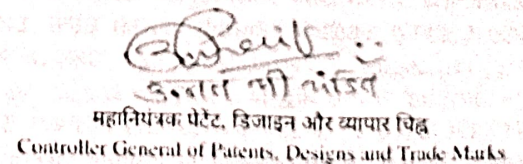 उन्नत पी पंडित
महानियंत्रक पेटेंट, डिजाइन और व्यापार चिह्न
Controller General of Patents, Designs and Trade Marks